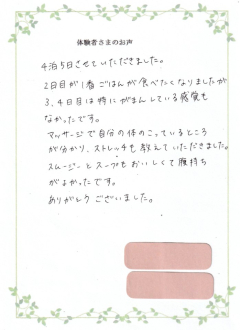 体験者さまのお声
4泊5日させていただきました。
2日目が1番ごはんが食べたくなりましたが
3、4日目は特にがまんしている感覚も
なかったです。
マッサージで自分の体のこっているところ
が分かり、ストレッチも教えていただきました。
スムージーとスープもおいしくて腹持ち
がよかったです。
ありがとうございました。